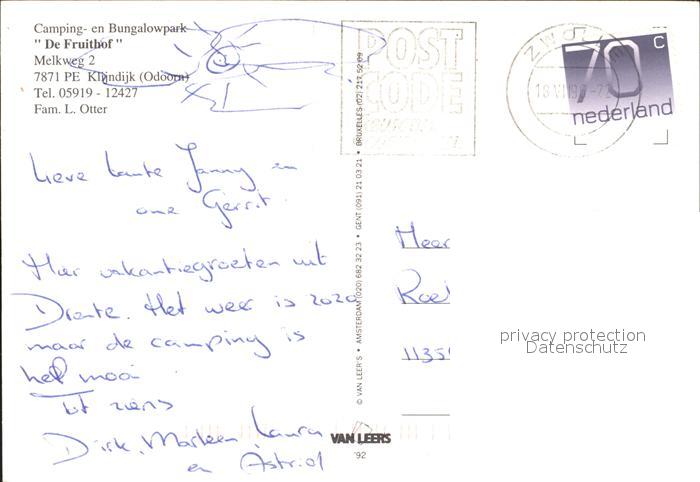 Camping- en Bungalowpark
" De Fruithof "
Melkweg 2
7871 PE Klijndijk (Odoorn)
Tel. 05919 - 12427
Fam. L. Otter
Lieve tante Janny en
ome Gerrit.
Hier vakantiegroeten uit
Drente. Het weer is zozo
maar de camping is
heel mooi
Tot ziens
Dirk, Marleen, Laura
en Astrid
© VAN LEER'S • AMSTERDAM (020) 682 32 23 • GENT (091) 21 03 21 • BRUXELLES (02) 217 52 09
VAN LEERS
'92
POST
CODE
ZWOLLE
70 c
nederland
Heer
1135
privacy protection
Datenschutz